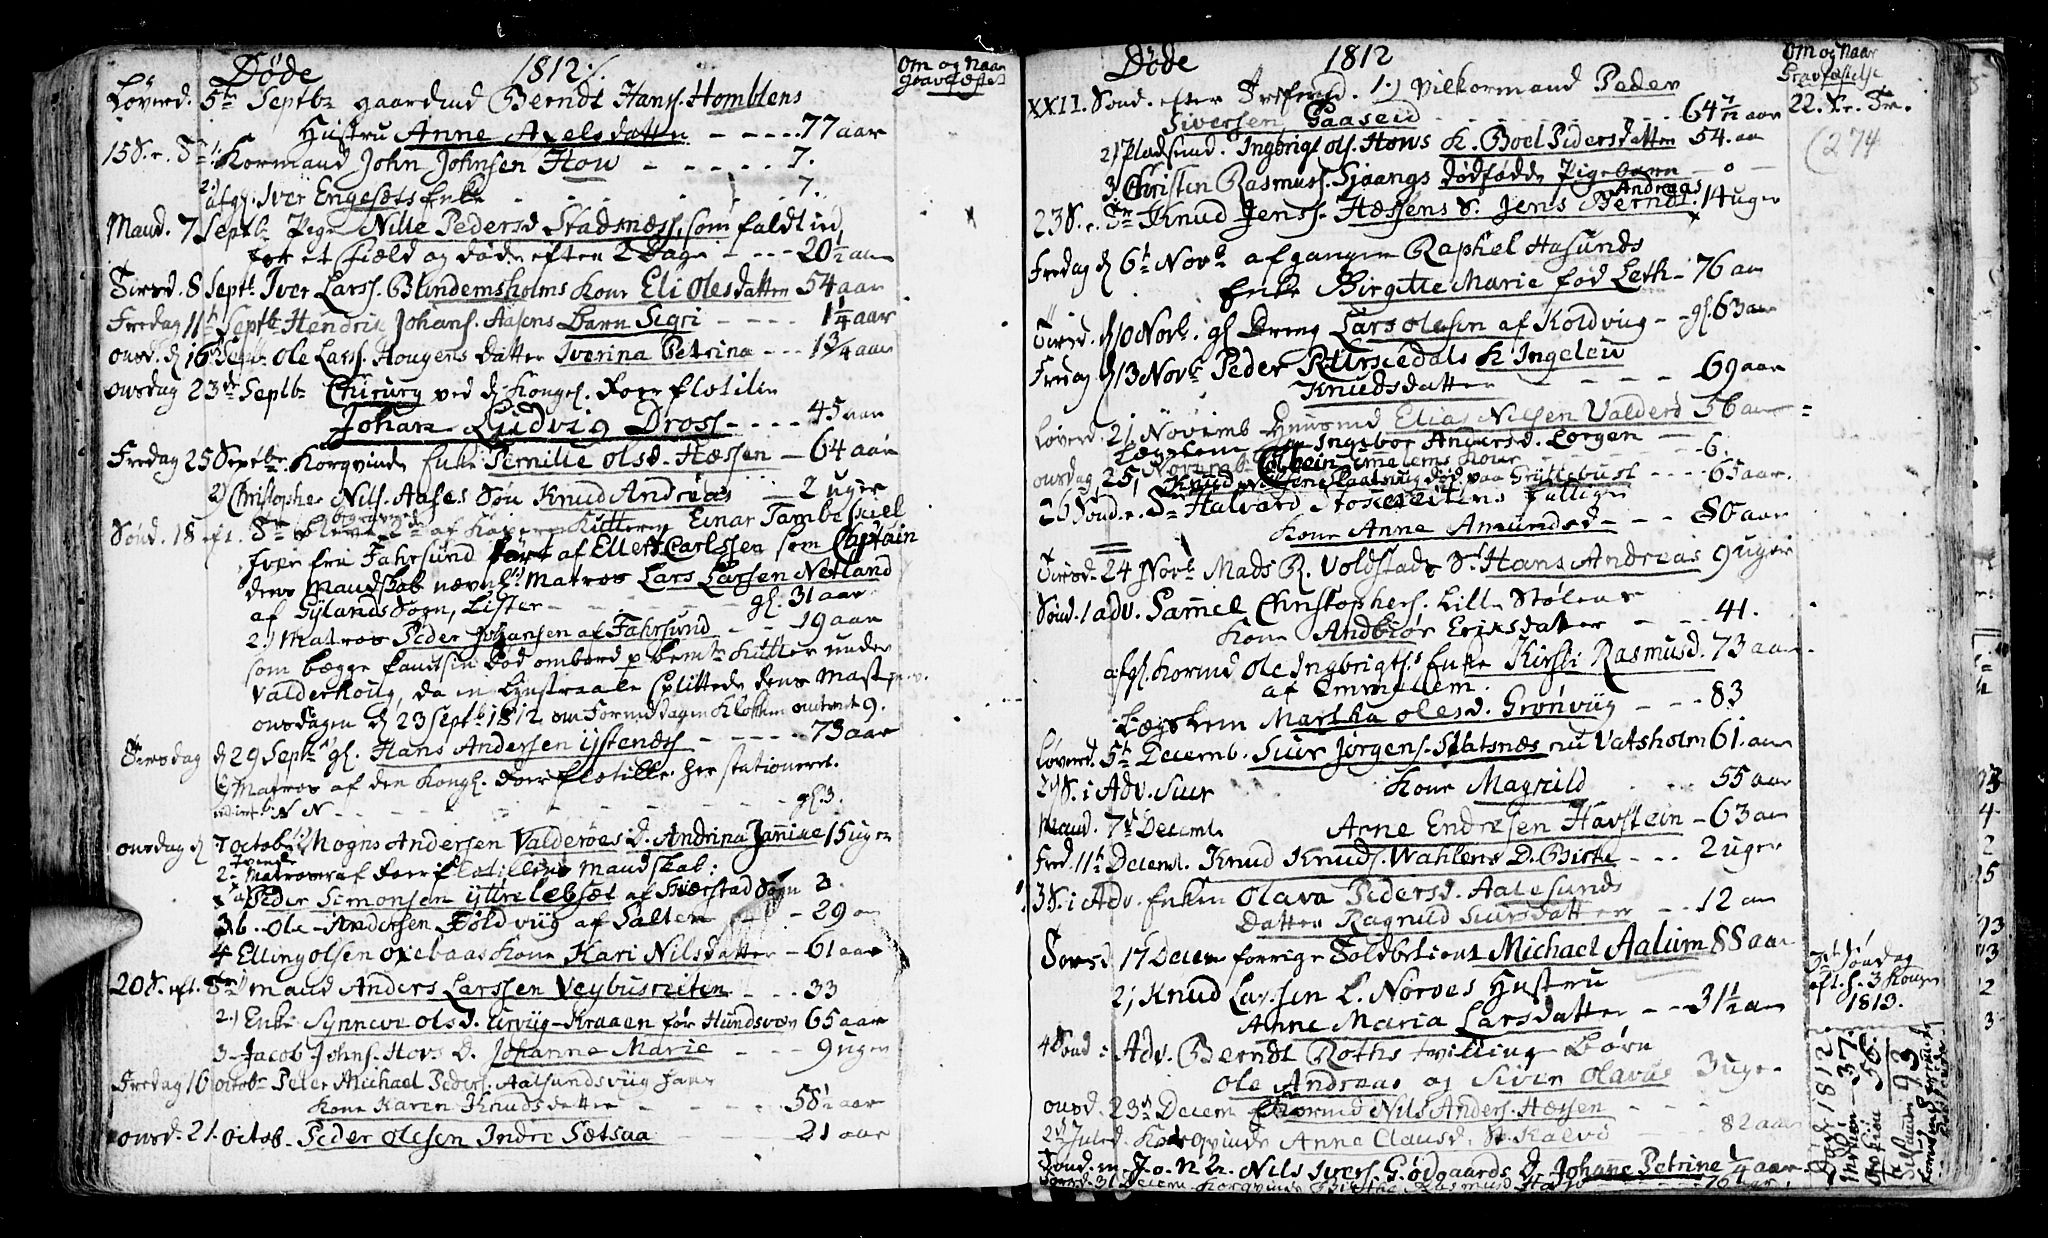 Døde 1812
Om og Naar Gravfæstet
Løverd. 5te Septbr gaardmd Berndt Hans. Homblens
Hustru Anne Axelsdatter - - - - 77 aar
15 S. e. Tr. 1. Kormand John Johnsen How - - - - 7.
2) afg. Iver Engesets Enke 7.
Mand. 7 Septb. Pige Nille Pedersd Stadsnæss, som faldt ind
et Field og døde efter 2 Dage - - - 20½ aar
Tirsd. 8 Septb. Iver Larss. Blindemsholms Kone Eli Olesdatter 54 aar
Fredag 11te Septbr Hendrik Johans. Aasens Barn Sigri - - - - 1¼ aar
onsd. d 16 Septb. Ole Larss. Hougens datter Iverina Petrina - - - 1¾ aar
onsdag 23de Septbr Chirurg ved d Konge. Roer flotille
Johan Ludvig Dross - - - - 45 aar
Fredag 25 Septbr. Korgvinde Enke Pernille Olsd. Hæssen - 64 aar
2) Christopher Nils. Aases Søn Knud Andreas - - 2 uger
Sønd. 18 eft. Tr. bleve begravede 2de af Kaper Kutteren Einar Tambeskiel
fra Fahrsund ført af Ellert Carlssen som Captain
dens Mandskab nævnl. 1) Matros Lars Larsen Netland
af Gylands Sogn, Lister - - - - gl. 31 aar
2.) Matros Peder Johansen af Fahrsund - - - 19 aar
som begge fandtes død ombord p bemte Kutter under
Valderhoug, da en Lynstraale splittede dens Mast
onsdagen d 23 Septb. 1812 om Formiddagen Klokken omtrent 9.
Tirsdag d 29 Septbr gl. Hans Andersen Ystenæss - - - - 73 aar
Matros af den Kongl. Roerflotille her stationeret.
N N - - - - gl. 3.
onsdag d 7 Octobr. 1) Mogns Andersen Valderøes D. Andrina Jannike 15 uger
Tvende
2. Matroser af Roerflotillens Mandskab:
a) Peder Simonsen Yttrelebsæt af Sværstad Sogn 3.
3 b. Ole Andersen Foldvug af Salten - 29 aar
4 Elling Olsen Oxebaas Kone Kari Nilsdatter - 61 aar
20 S. eft. Tr. 1) mand Anders Larssen Veybustreiten - - - 33
2.) Enke Synneve Ols D. Urvug-Kraaen før Hundsvær 65 aar
3 - Jacob Johns. Hovs D. Johanne Marie - - - 9 uger
Fredag 16 octobr Peter Michael Peders. Aalsundsvug
Kone Karen Knudsdatter - - - - 58½ aar
onsd. 21. octob. Peder Olesen Indre Sætsaa - - - - 21 aar
Døde 1812
Om og Naar Gravfæstelse
XXII. Sønd. efter Tref. 1.) Vilkormand Peder
Siversen Gaaseid - - - - 64 7/12 aar 22. S. e. Tr.
2) Pladsmd. Ingbrigt Ols. Hows K. Boel Pedersdatter 54. aa
(274
3 Christen Rasmuss. Sjaangs dødfødde Pigebarn - o -
23 S. e. Tr Knud Jenss. Hæssens S. Jens Berndt Andreas 14 uger
Fredag d 6te Novbr afgangen Raphel Hasunds
Enke Birgitte Marie fød Leth - 76 aar
Tirsd. d 10 Novb. gl Dreng Lars Olesen af Koldvug - gl. 63 aar
Fredag d 13 Novbr Peder Rørstedals K. Ingeleiv
Knudsdatter - - - - 69 aar
Løverd. 21 Novemb Huusmd Elias Nilsen Valderø 56 aar
Lægslem Ingebor Andersd. Lorgen - - 6.
onsdag 25, Novemb.
Knud død paa Gryttebust - - - - 65 aar.
26 Sønd. e. Tr Halvard Fattige
Kone Anne Amundsd - - - 86 aar
Tirsd. 24 Novb Mads R. Voldstads S. Hans Andreas 9 uger
Sønd. 1 Adv. Samel Christophers. Lille Stølens
Kone Andbiør Eriksdatter - - - 41.
afgl. Kormd Ole Ingbrigts. Enke Kirsti Rasmusd. 73 aar
af Emmelem.
Lægslem Martha Olesd. Grønvug - - - 83
Løverd. 5te Decemb. Siur Jørgens. Slatsnæs nu Vatsholm 61. aar
2. S. i Adv. Siur Kone Magnild 55 aar
Mand. 7de Decemb Arne Endresen Havstein - 63 aar
Fred. 11te Decemb. Knud Knuds. Wahlens D. Birte - - - 2 uger
3 S. i Adv. Enken Olava Pedersd. Aalesunds
Datter Ragnild Siursdatter - - 12 aar
Torsd 17 Decem forrige Toldbetient Michael Aalum 88 aar
2) Knud Larssen L. Nørves Hustru
Anne Maria Larsdatter - - 31½ aar
3die Søndag eft. h. 3 Konger 1813.
4 Sønd i Adv. Berndt Roths tvilling Børn
Ole Andreas og Siver Olavus 3 uger
onsd. 23de Decem Kormd Nils Anders. Hæssen - - -
2 d Juled. Korgvinde Anne Clausd. St. Kalvø - - - - 82 aar
Sønd. m. J. o. N. Nils Ivers. Godgaards D. Johanne Petrine ¼ aar
Torsd. 31 Decem. Korgvinde Birthe Rasmusd - - - 76
Døde 1812
Mandkiøn - 37.
Qvindkiøn 56.
Tilsammen 93